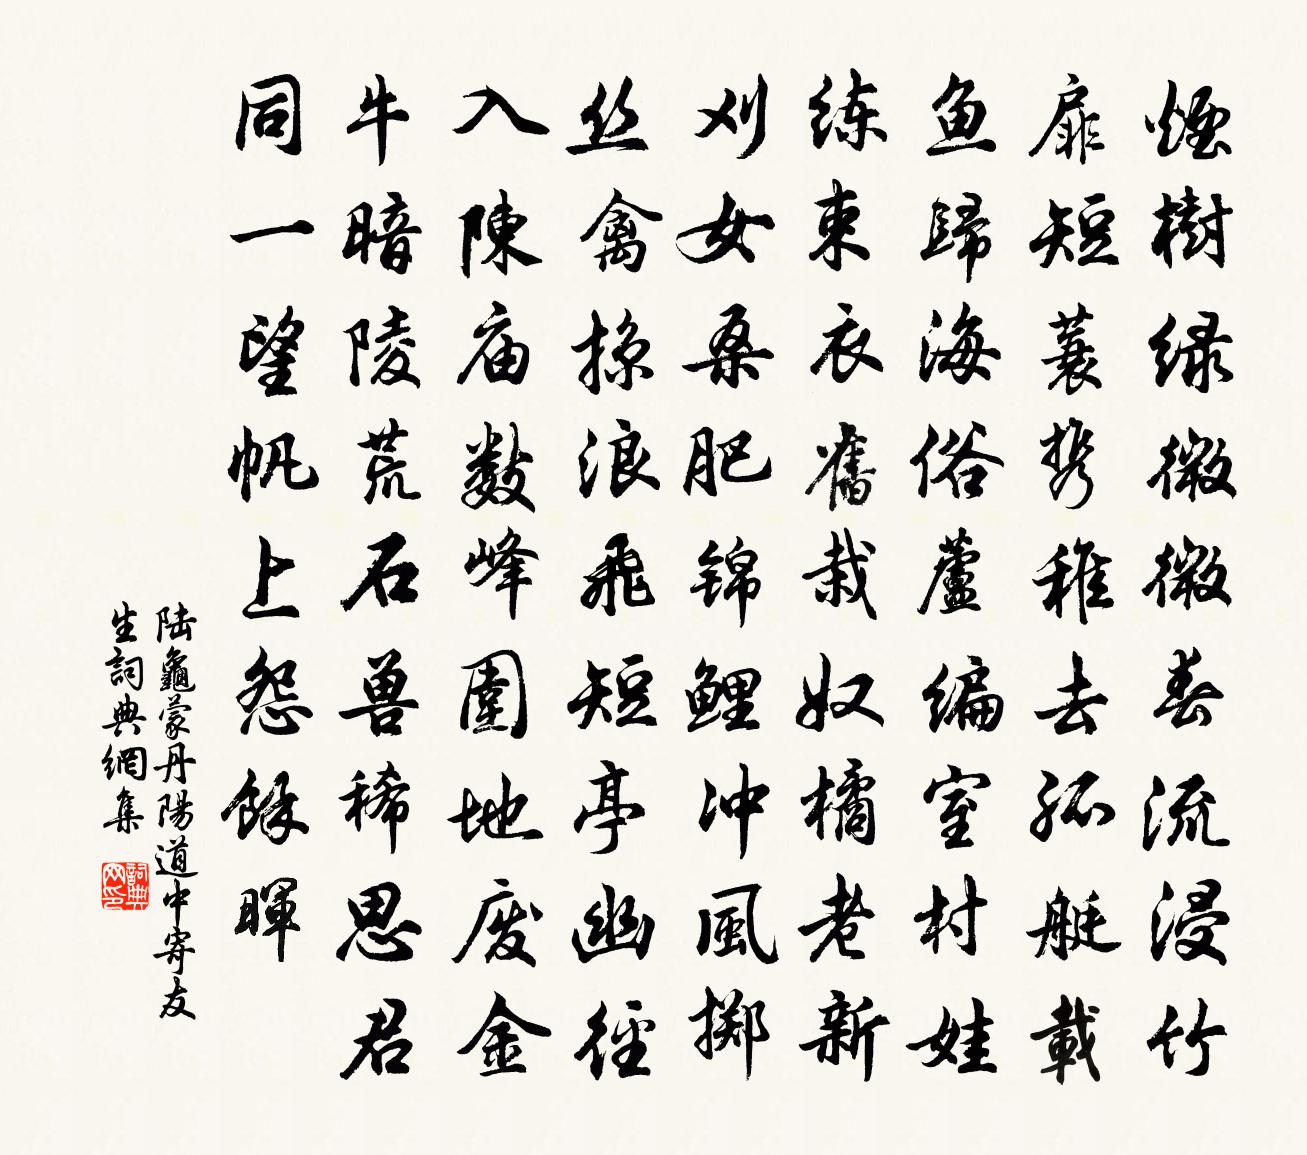 煙樹緑微微春流浸竹
扉短蓑携稚去孤艇載
鱼歸海俗蘆编室村娃
练束衣舊栽奴橘老新
刈女桑肥锦鲤冲風掷
丝禽掠浪飛短亭幽徑
入陳庙數峰圍地废金
牛暗陵荒石兽稀思君
同一望帆上怨餘暉
陆龜蒙丹陽道中寄友
生詞典網集
詞典网印